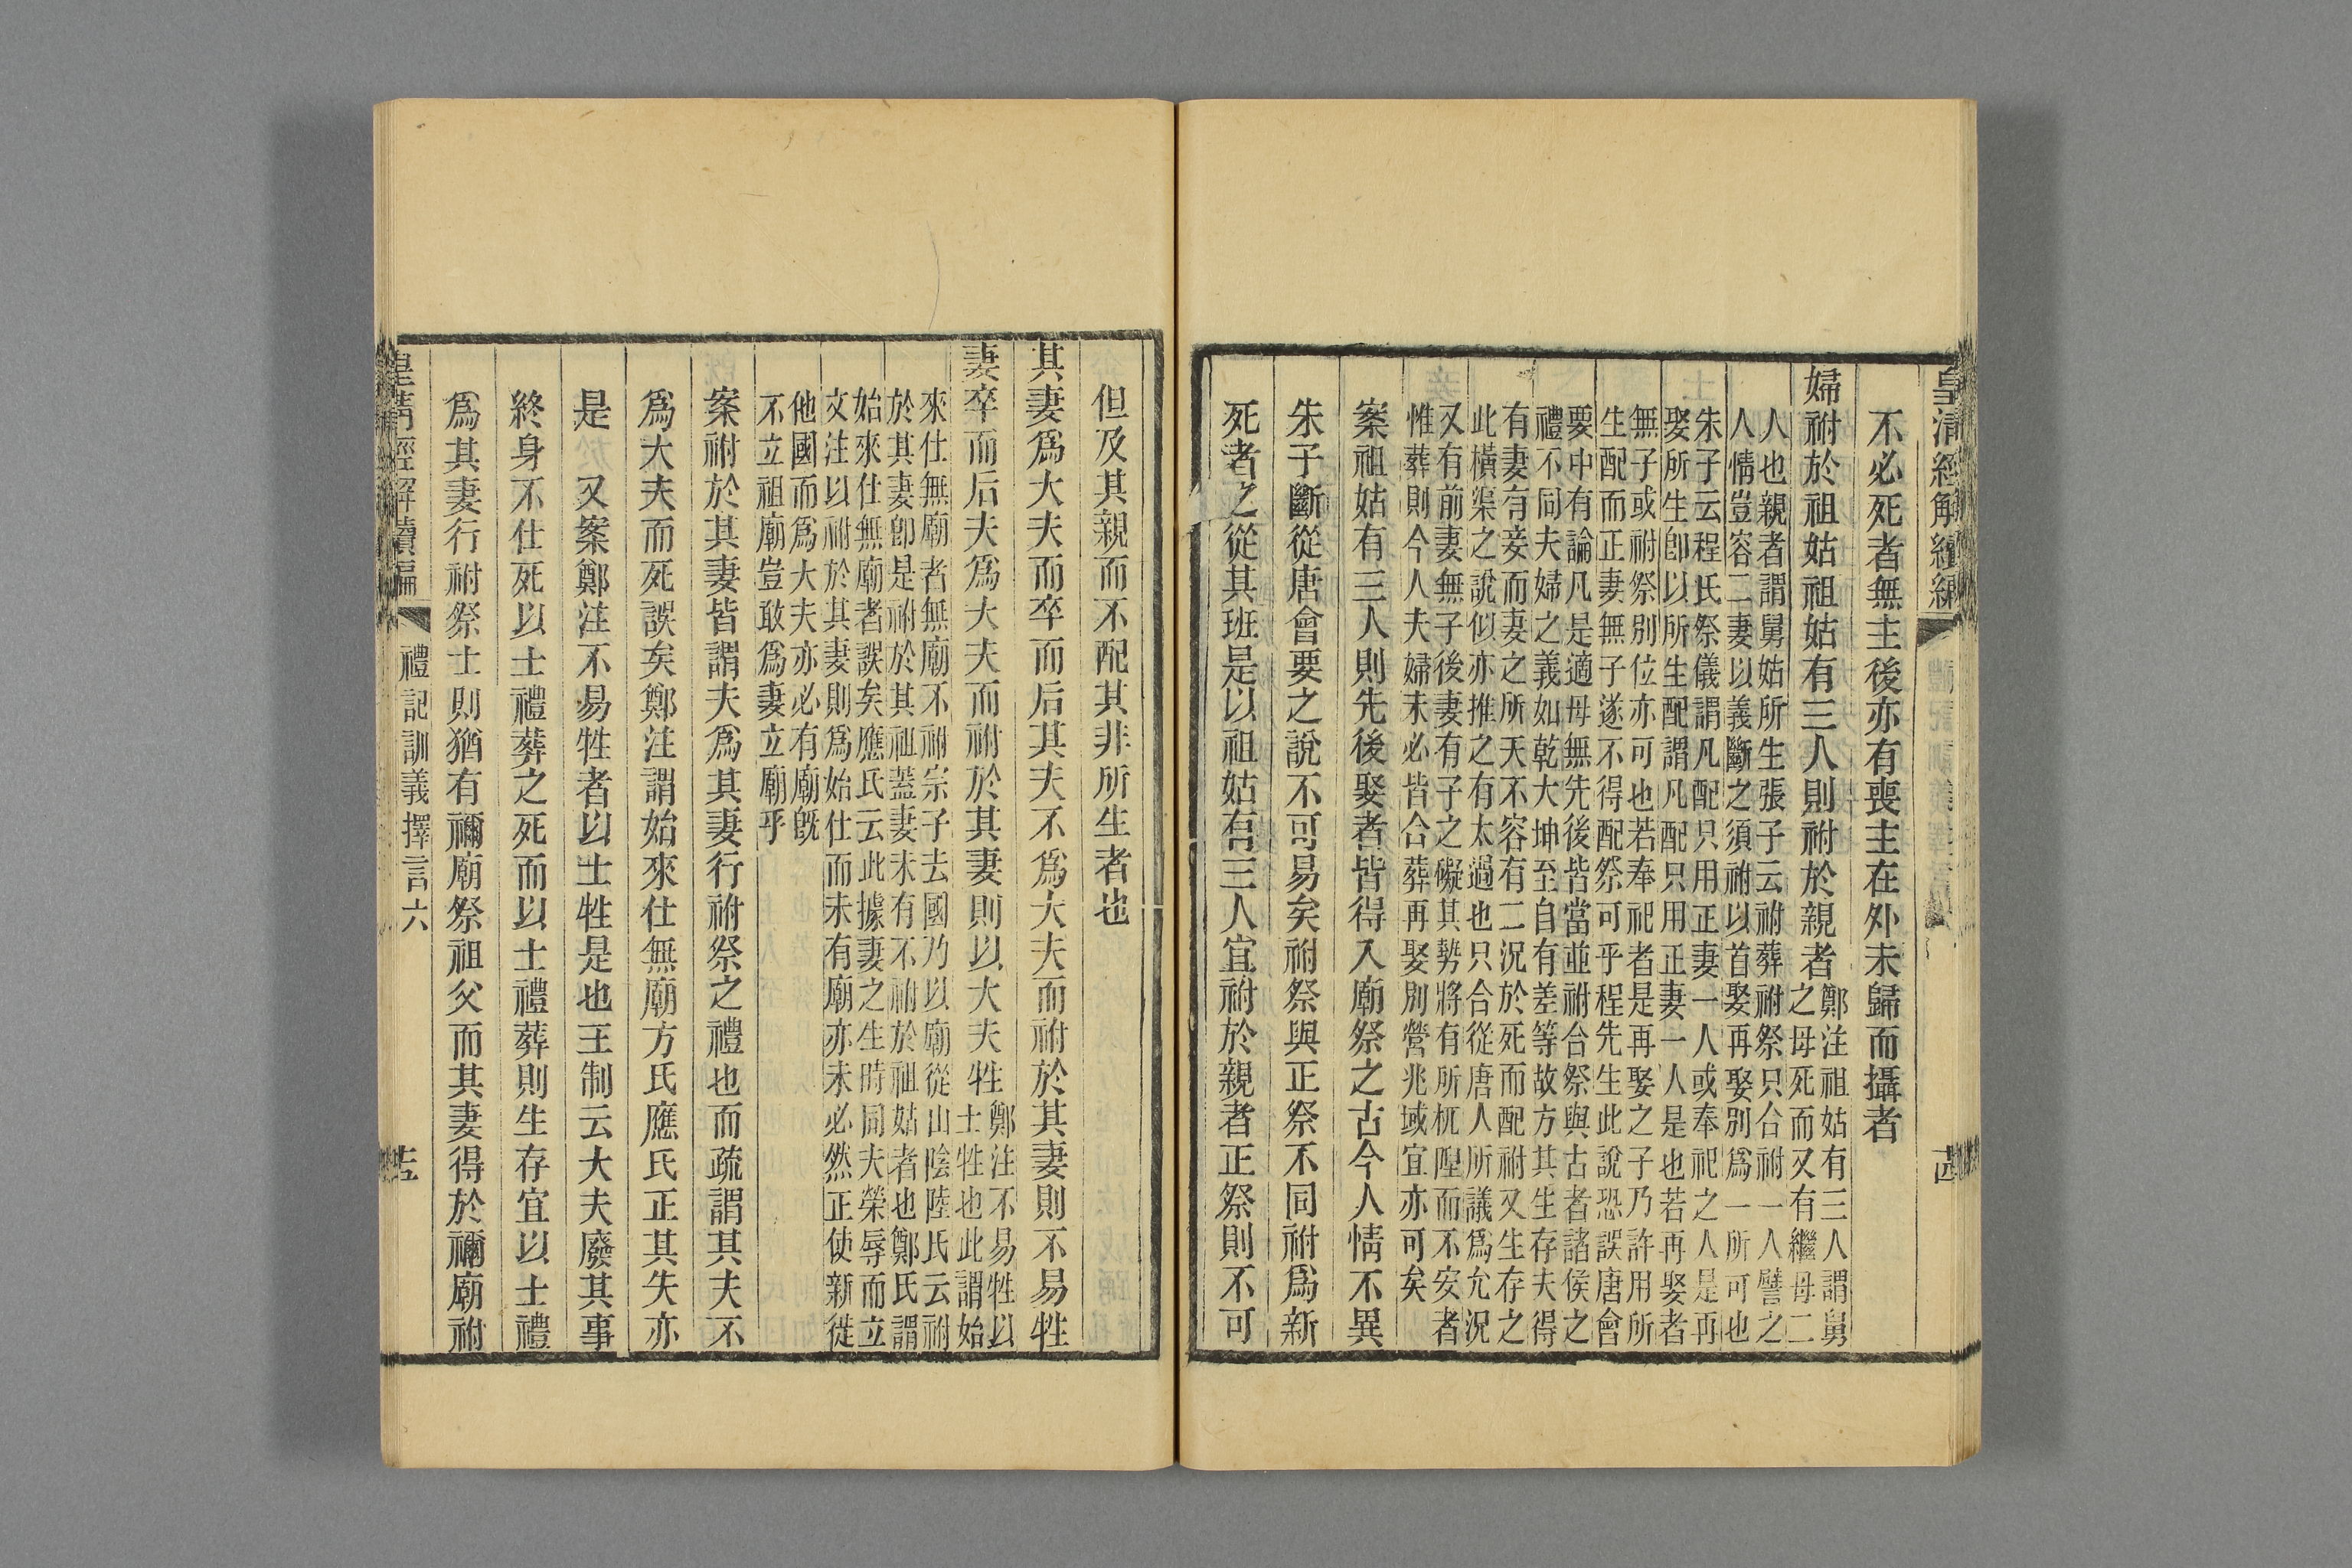 皇清經解續編
不必死者無主後亦有喪主在外未歸而攝者
婦祔於祖姑祖姑有三人則祔於親者
鄭注祖姑有三人謂舅
之母死而又有繼母二
人也親者謂舅姑所生張子云祔葬祔祭只合祔一人譬之
人情豈容二妻以義斷之須祔以首娶再娶別爲一所可也
朱子云程氏祭儀謂凡配只用正妻一人或奉祀之人是再
娶所生卽以所生配謂凡配只用正妻一人是也若再娶者
無子或祔祭別位亦可也若奉祀者是再娶之子乃許用所
生配而正妻無子遂不得配祭可乎程先生此說恐誤唐會
要中有論凡是適母無先後皆當並祔合祭與古者諸侯之
禮不同夫婦之義如乾大坤至自有差等故方其生存夫得
有妻有妾而妻之所天不容有二況於死而配祔又生存之
此橫渠之說似亦推之有太過也只合從唐人所議爲允況
又有前妻無子後妻有子之礙其勢將有所杌隉而不安者
惟葬則今人夫婦未必皆合葬再娶別營兆域宜亦可矣
案祖姑有三人則先後娶者皆得入廟祭之古今人情不異
朱子斷從唐會要之說不可易矣祔祭與正祭不同祔爲新
死者之從其班是以祖姑有三人宜祔於親者正祭則不可
但及其親而不配其非所生者也
其妻爲大夫而卒而后其夫不爲大夫而祔於其妻則不易牲
妻卒而后夫爲大夫而祔於其妻則以大夫牲
鄭注不易牲以
士牲也此謂始
來仕無廟者無廟不祔宗子去國乃以廟從山陰陸氏云祔
於其妻卽是祔於其祖蓋妻未有不祔於祖姑者也鄭氏謂
始來仕無廟者誤矣應氏云此據妻之生時同夫榮辱而立
文注以祔於其妻則爲始仕而未有廟亦未必然正使新徙
他國而爲大夫亦必有廟旣
不立祖廟豈敢爲妻立廟乎
案祔於其妻皆謂夫爲其妻行祔祭之禮也而疏謂其夫不
爲大夫而死誤矣鄭注謂始來仕無廟方氏應氏正其失亦
是　又案鄭注不易牲者以士牲是也王制云大夫廢其事
終身不仕死以士禮葬之死而以士禮葬則生存宜以士禮
爲其妻行祔祭士則猶有禰廟祭祖父而其妻得於禰廟祔
皇清經解續編
禮記訓義擇言六